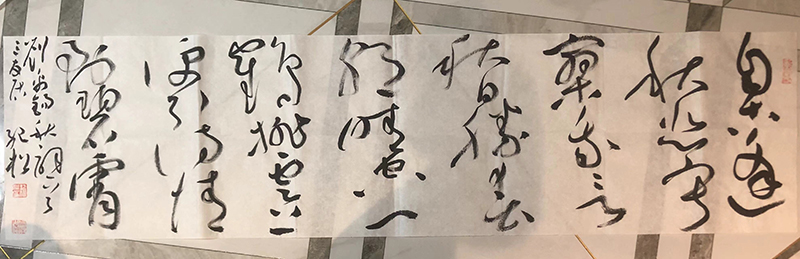 自古逢
秋悲寂
寥我言
秋日勝春
朝晴空一
鶴排雲上
便引詩情
到碧霄
劉禹錫秋詞